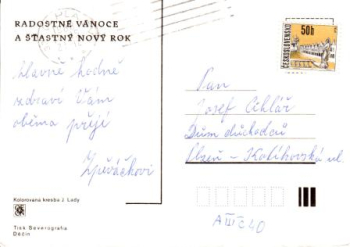 RADOSTNÉ VÁNOCE
A ŠŤASTNÝ NOVÝ ROK
hlavně hodně
zdraví Vám
oběma přejí
Zpěváčkovi
Kolorovaná kresba J. Lady
Tisk Severografia
Děčín
50h
ČESKOSLOVENSKO
Pan
Josef Cihlář
Dům důchodců
Plzeň - Kotíkovská ul.
A III č 40